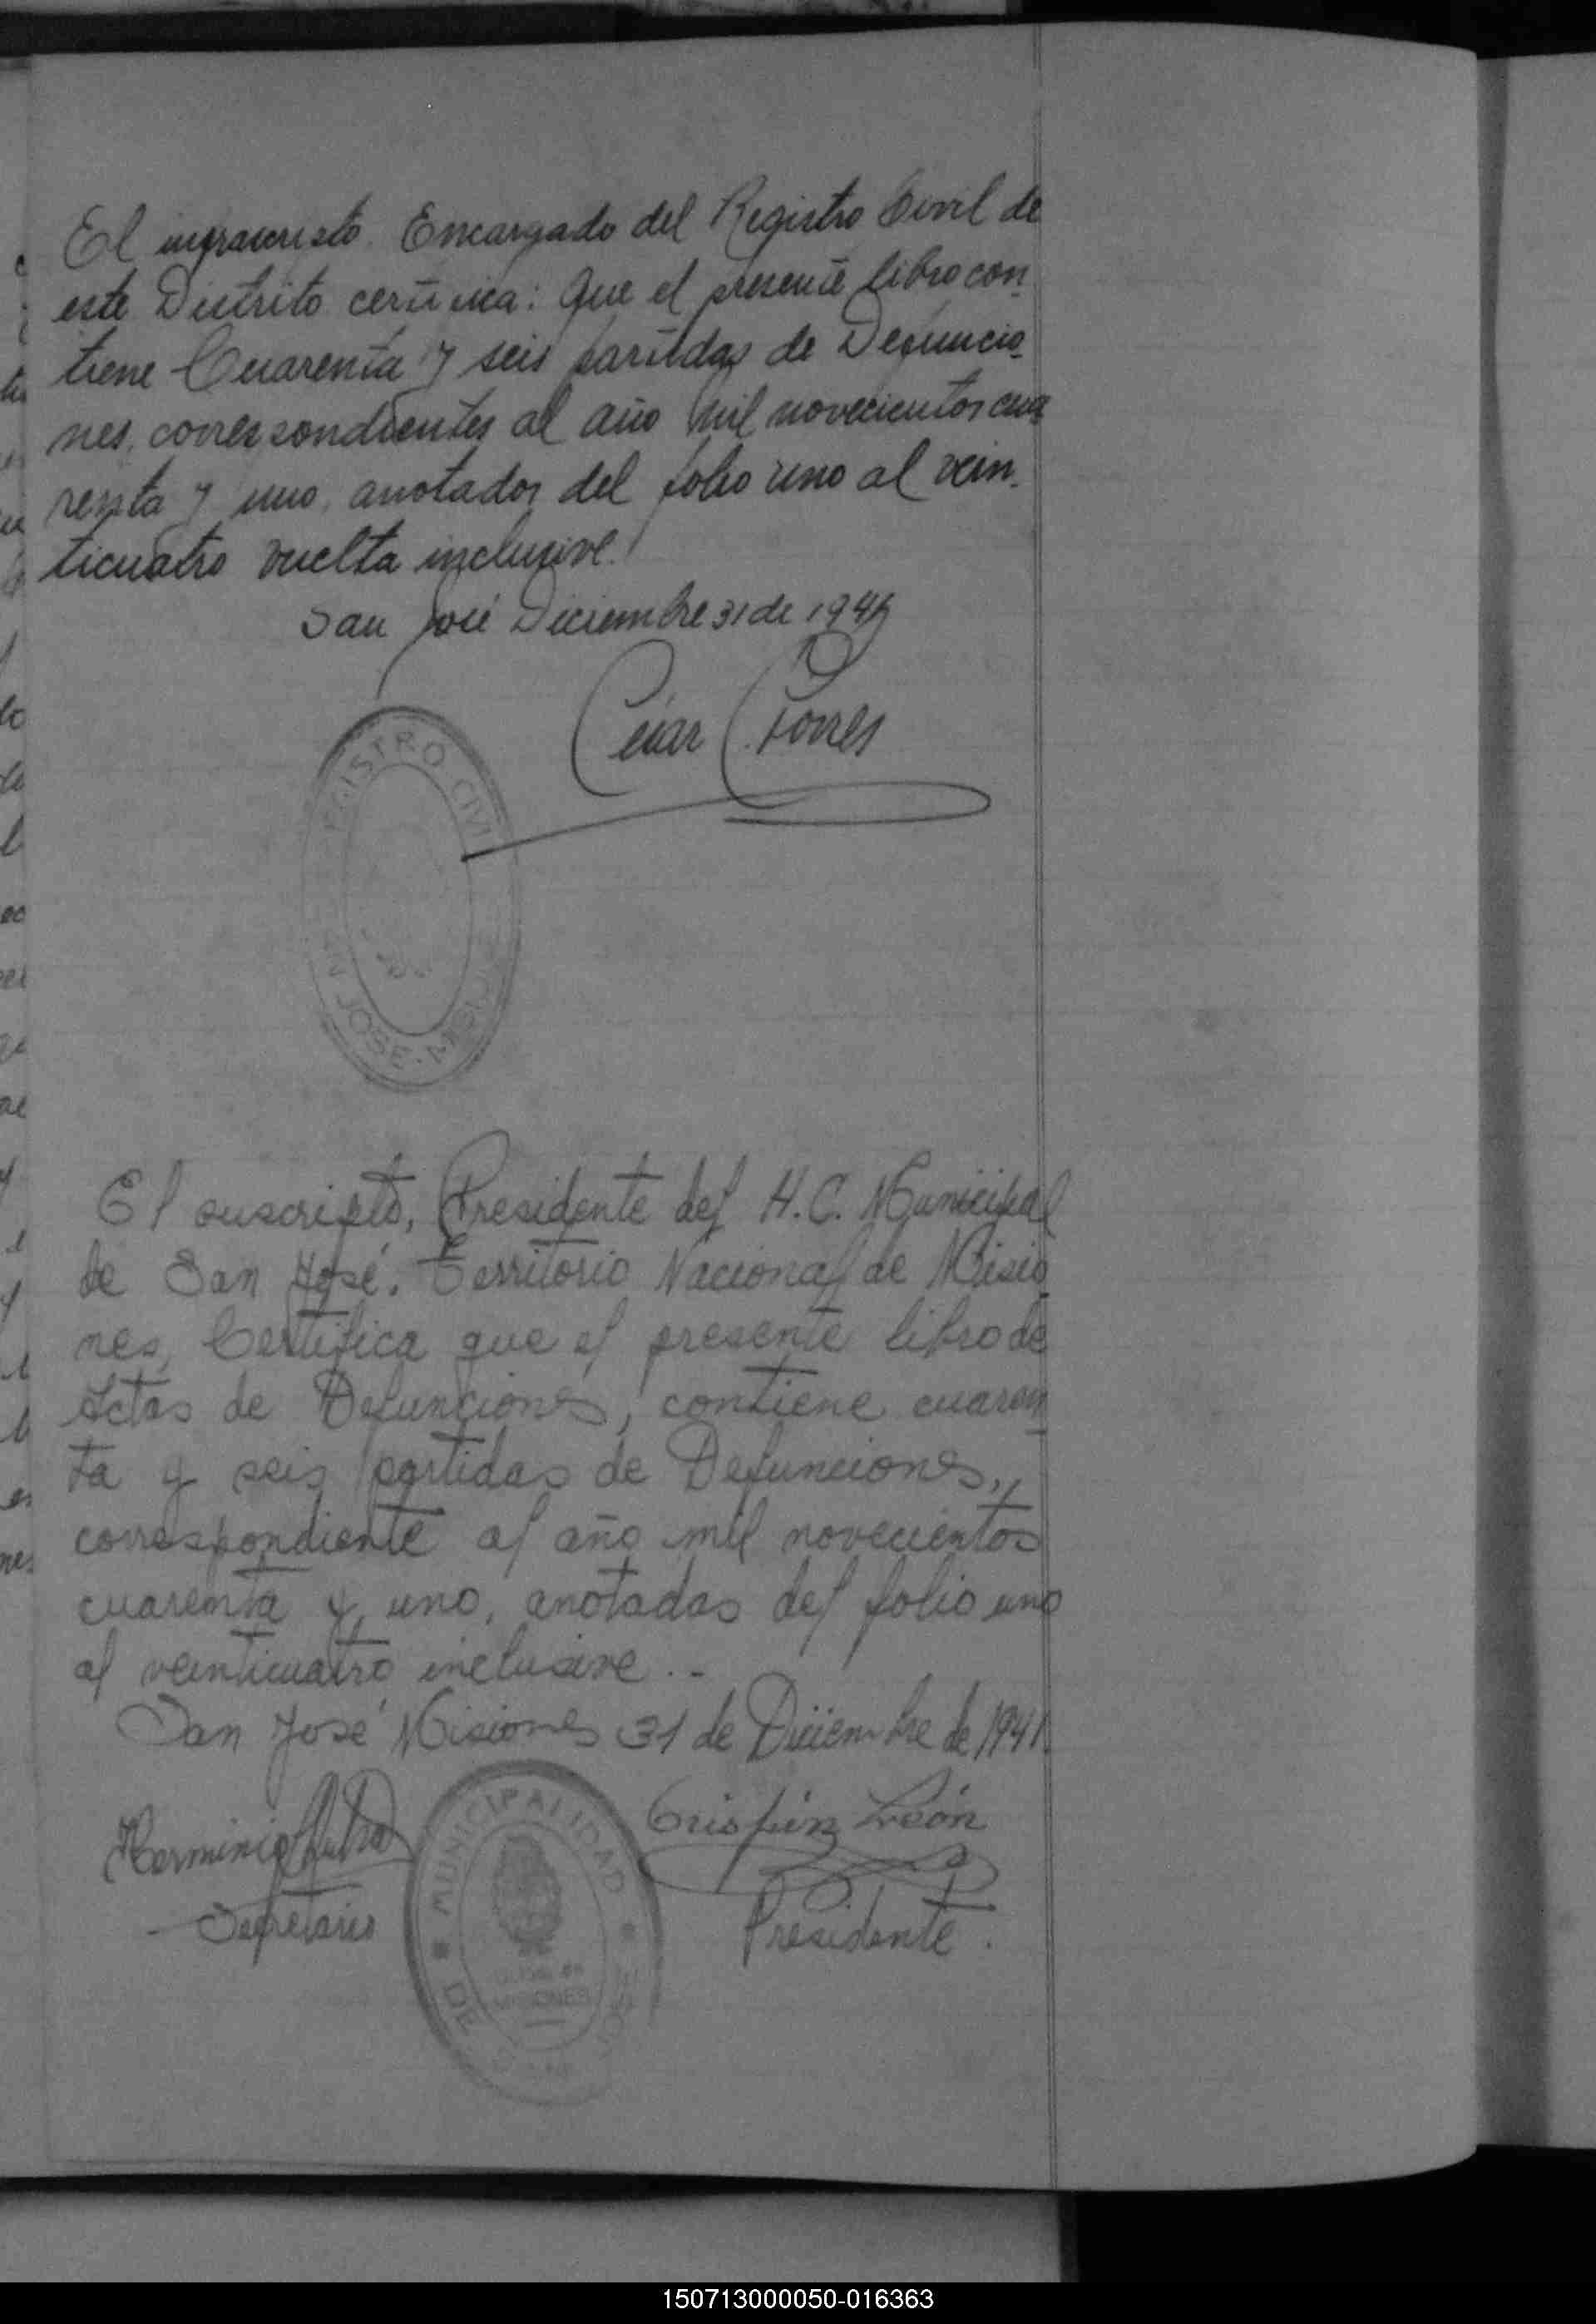 El infrascristo Encargado del Registro Civil de
este Distrito certifica: Que el presente libro con
tiene Cuarenta y seis partidas de Defuncio
nes, correspondientes al año mil novecientos cua
renta y uno, anotados del folio uno al vein
ticuatro vuelta inclusive.
San José Diciembre 31 de 1941
César Torres
REGISTRO CIVIL
SAN JOSE
El suscripto, Presidente del H.C. Municipal
de San José. Territorio Nacional de Misio
nes, Certifica que el presente libro de
Actas de Defunciones, contiene cuaren
ta y seis partidas de Defunciones,
correspondiente al año mil novecientos
cuarenta y uno, anotadas del folio uno
al veinticuatro inclusive.-
San José Misiones 31 de Diciembre de 1941.
Herminio
Crispín León
Secretario
Presidente.
MUNICIPALIDAD
DE
MISIONES
150713000050-016363